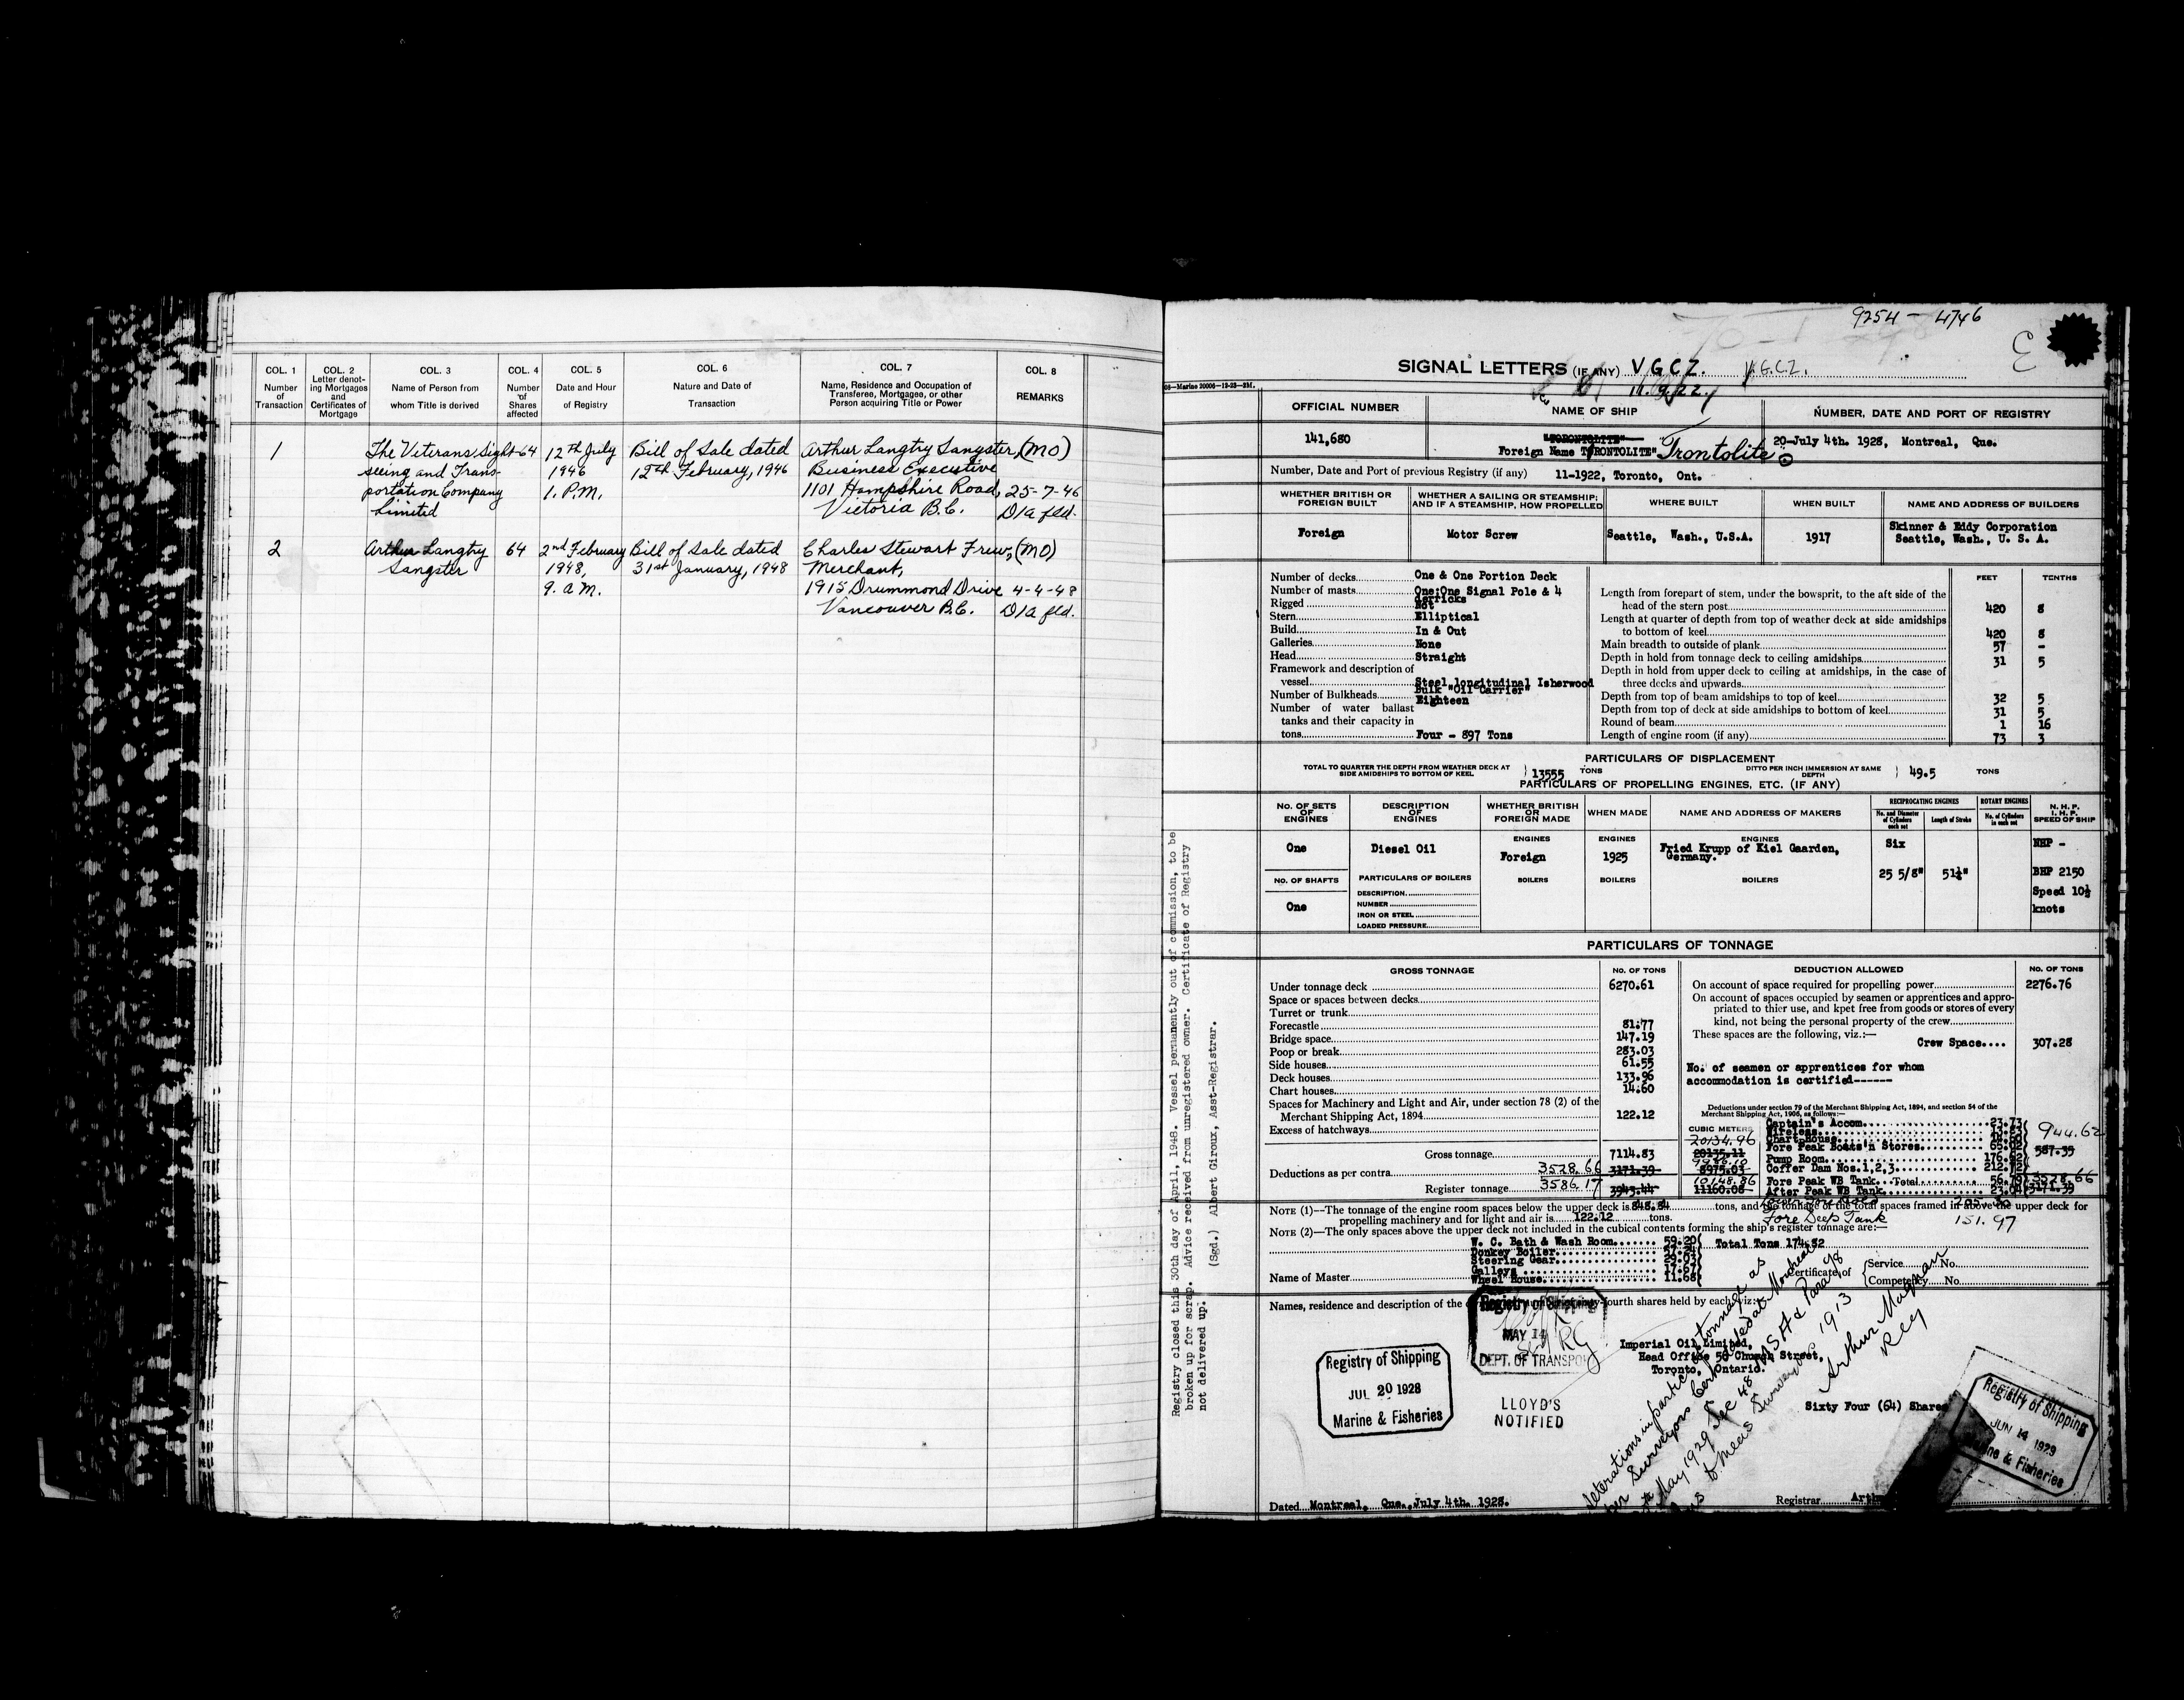 COL. 1
Number of Transaction
COL. 2
Letter denoting Mortgages and Certificates of Mortgage
COL. 3
Name of Person from whom Title is derived
COL. 4
Number of Shares affected
COL. 5
Date and Hour of Registry
COL. 6
Nature and Date of Transaction
COL. 7
Name, Residence and Occupation of Transferee, Mortgagee, or other Person acquiring Title or Power
COL. 8
REMARKS
1
The Veterans Sight-
seeing and Trans-
portation Company
Limited
64
12th July
1946
1. P.M.
Bill of Sale dated
12th February, 1946
Arthur Langtry Sangster,
Business Executive
1101 Hampshire Road,
Victoria B.C.
(MO)
25-7-46
D/a fld.
2
Arthur Langtry
Sangster
64
2nd February
1948,
9. a M.
Bill of Sale dated
31st January, 1948
Charles Stewart Frew,
Merchant,
1915 Drummond Drive
Vancouver B.C.
(MO)
4-4-48
D/a fld.
Registry closed this 30th day of April, 1948. Vessel permanently out of commission, to be
broken up for scrap. Advice received from unregistered owner. Certificate of Registry
not delivered up.
(Sgd.) Albert Giroux, Asst-Registrar.
9254 - 4746
SIGNAL LETTERS (IF ANY) V G C Z. V.G.C.Z.
OFFICIAL NUMBER
NAME OF SHIP
NUMBER, DATE AND PORT OF REGISTRY
141,680
"TORONTOLITE"
Foreign Name TORONTOLITE" Trontolite
20-July 4th. 1928, Montreal, Que.
Number, Date and Port of previous Registry (if any) 11-1922, Toronto, Ont.
WHETHER BRITISH OR FOREIGN BUILT
WHETHER A SAILING OR STEAMSHIP; AND IF A STEAMSHIP, HOW PROPELLED
WHERE BUILT
WHEN BUILT
NAME AND ADDRESS OF BUILDERS
Foreign
Motor Screw
Seattle, Wash., U.S.A.
1917
Skinner & Eddy Corporation
Seattle, Wash., U. S. A.
Number of decks One & One Portion Deck
Number of masts One:One Signal Pole & 4 derricks
Rigged Not
Stern Elliptical
Build In & Out
Galleries None
Head Straight
Framework and description of
vessel Steel longitudinal Isherwood
Bulk "Oil Carrier"
Number of Bulkheads Eighteen
Number of water ballast
tanks and their capacity in
tons Four - 897 Tons
FEET TENTHS
Length from forepart of stem, under the bowsprit, to the aft side of the
head of the stern post 420 8
Length at quarter of depth from top of weather deck at side amidships
to bottom of keel 420 8
Main breadth to outside of plank 57 -
Depth in hold from tonnage deck to ceiling amidships 31 5
Depth in hold from upper deck to ceiling at amidships, in the case of
three decks and upwards
Depth from top of beam amidships to top of keel 32 5
Depth from top of deck at side amidships to bottom of keel 31 5
Round of beam 1 16
Length of engine room (if any) 73 3
PARTICULARS OF DISPLACEMENT
TOTAL TO QUARTER THE DEPTH FROM WEATHER DECK AT SIDE AMIDSHIPS TO BOTTOM OF KEEL 13555 TONS
DITTO PER INCH IMMERSION AT SAME DEPTH 49.5 TONS
PARTICULARS OF PROPELLING ENGINES, ETC. (IF ANY)
NO. OF SETS OF ENGINES
DESCRIPTION OF ENGINES
WHETHER BRITISH OR FOREIGN MADE
WHEN MADE
NAME AND ADDRESS OF MAKERS
RECIPROCATING ENGINES
No. and Diameter of Cylinders each set
Length of Stroke
ROTARY ENGINES
No. of Cylinders in each set
N. H. P.
I. H. P.
SPEED OF SHIP
One
Diesel Oil
ENGINES
Foreign
ENGINES
1925
ENGINES
Fried Krupp of Kiel Gaarden,
Germany.
Six
25 5/8"
51¼"
NHP -
BHP 2150
Speed 10½
knots
NO. OF SHAFTS
One
PARTICULARS OF BOILERS
DESCRIPTION
NUMBER
IRON OR STEEL
LOADED PRESSURE
BOILERS
BOILERS
BOILERS
PARTICULARS OF TONNAGE
GROSS TONNAGE
NO. OF TONS
Under tonnage deck 6270.61
Space or spaces between decks
Turret or trunk
Forecastle 81.77
Bridge space 147.19
Poop or break 283.03
Side houses 61.55
Deck houses 133.96
Chart houses 14.60
Spaces for Machinery and Light and Air, under section 78 (2) of the
Merchant Shipping Act, 1894 122.12
Excess of hatchways
Gross tonnage 7114.83
Deductions as per contra 3528.66 3171.39
Register tonnage 3586.17 3943.44
DEDUCTION ALLOWED
NO. OF TONS
On account of space required for propelling power 2276.76
On account of spaces occupied by seamen or apprentices and appro-
priated to thier use, and kpet free from goods or stores of every
kind, not being the personal property of the crew
These spaces are the following, viz.:—
Crew Space.... 307.28
No. of seamen or apprentices for whom
accommodation is certified------
Deductions under section 79 of the Merchant Shipping Act, 1894, and section 54 of the
Merchant Shipping Act, 1906, as follows:—
CUBIC METERS
20134.96
20135.11
9986.10
8975.03
10148.86
11160.08
Captain's Accom. 23.73
Wireless
Chart House
Fore Peak Boats'n Stores
Pump Room 176.92
Coffer Dam Nos.1,2,3 212.72
Fore Peak WB Tank 56.79
After Peak WB Tank 23.04
944.62
587.35
Total 3528.66
3171.39
Fore Deep Tank 151.97
NOTE (1)—The tonnage of the engine room spaces below the upper deck is 848.84 tons, and the tonnage of the total spaces framed in above the upper deck for
propelling machinery and for light and air is 122.12 tons.
NOTE (2)—The only spaces above the upper deck not included in the cubical contents forming the ship's register tonnage are:—
W. C. Bath & Wash Room 59.20
Donkey Boiler 57.24
Steering Gear 29.03
Galleys 17.67
Wheel House 11.68
Total Tons 174.82
Name of Master
Certificate of Service No.
Competency No.
Names, residence and description of the
-fourth shares held by each viz:
Registry of Shipping
MAY 14
DEPT. OF TRANSPORT
Imperial Oil Limited,
Head Office 56 Church Street,
Toronto, Ontario.
Sixty Four (64) Shares
Registry of Shipping
JUL 20 1928
Marine & Fisheries
LLOYD'S
NOTIFIED
Alterations in particulars of tonnage as
per Surveyors Cert dated at Montreal
May 1929 Sec 48 M S A & Para 48
Arthur Magnan
Reg
Registry of Shipping
JUN 14 1929
Marine & Fisheries
Dated Montreal, Que., July 4th. 1928.
Registrar